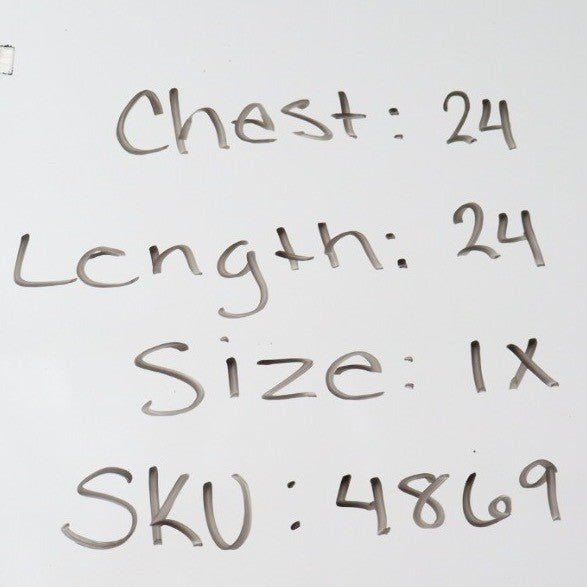 Chest: 24
Length: 24
Size: 1X
SKU: 4869